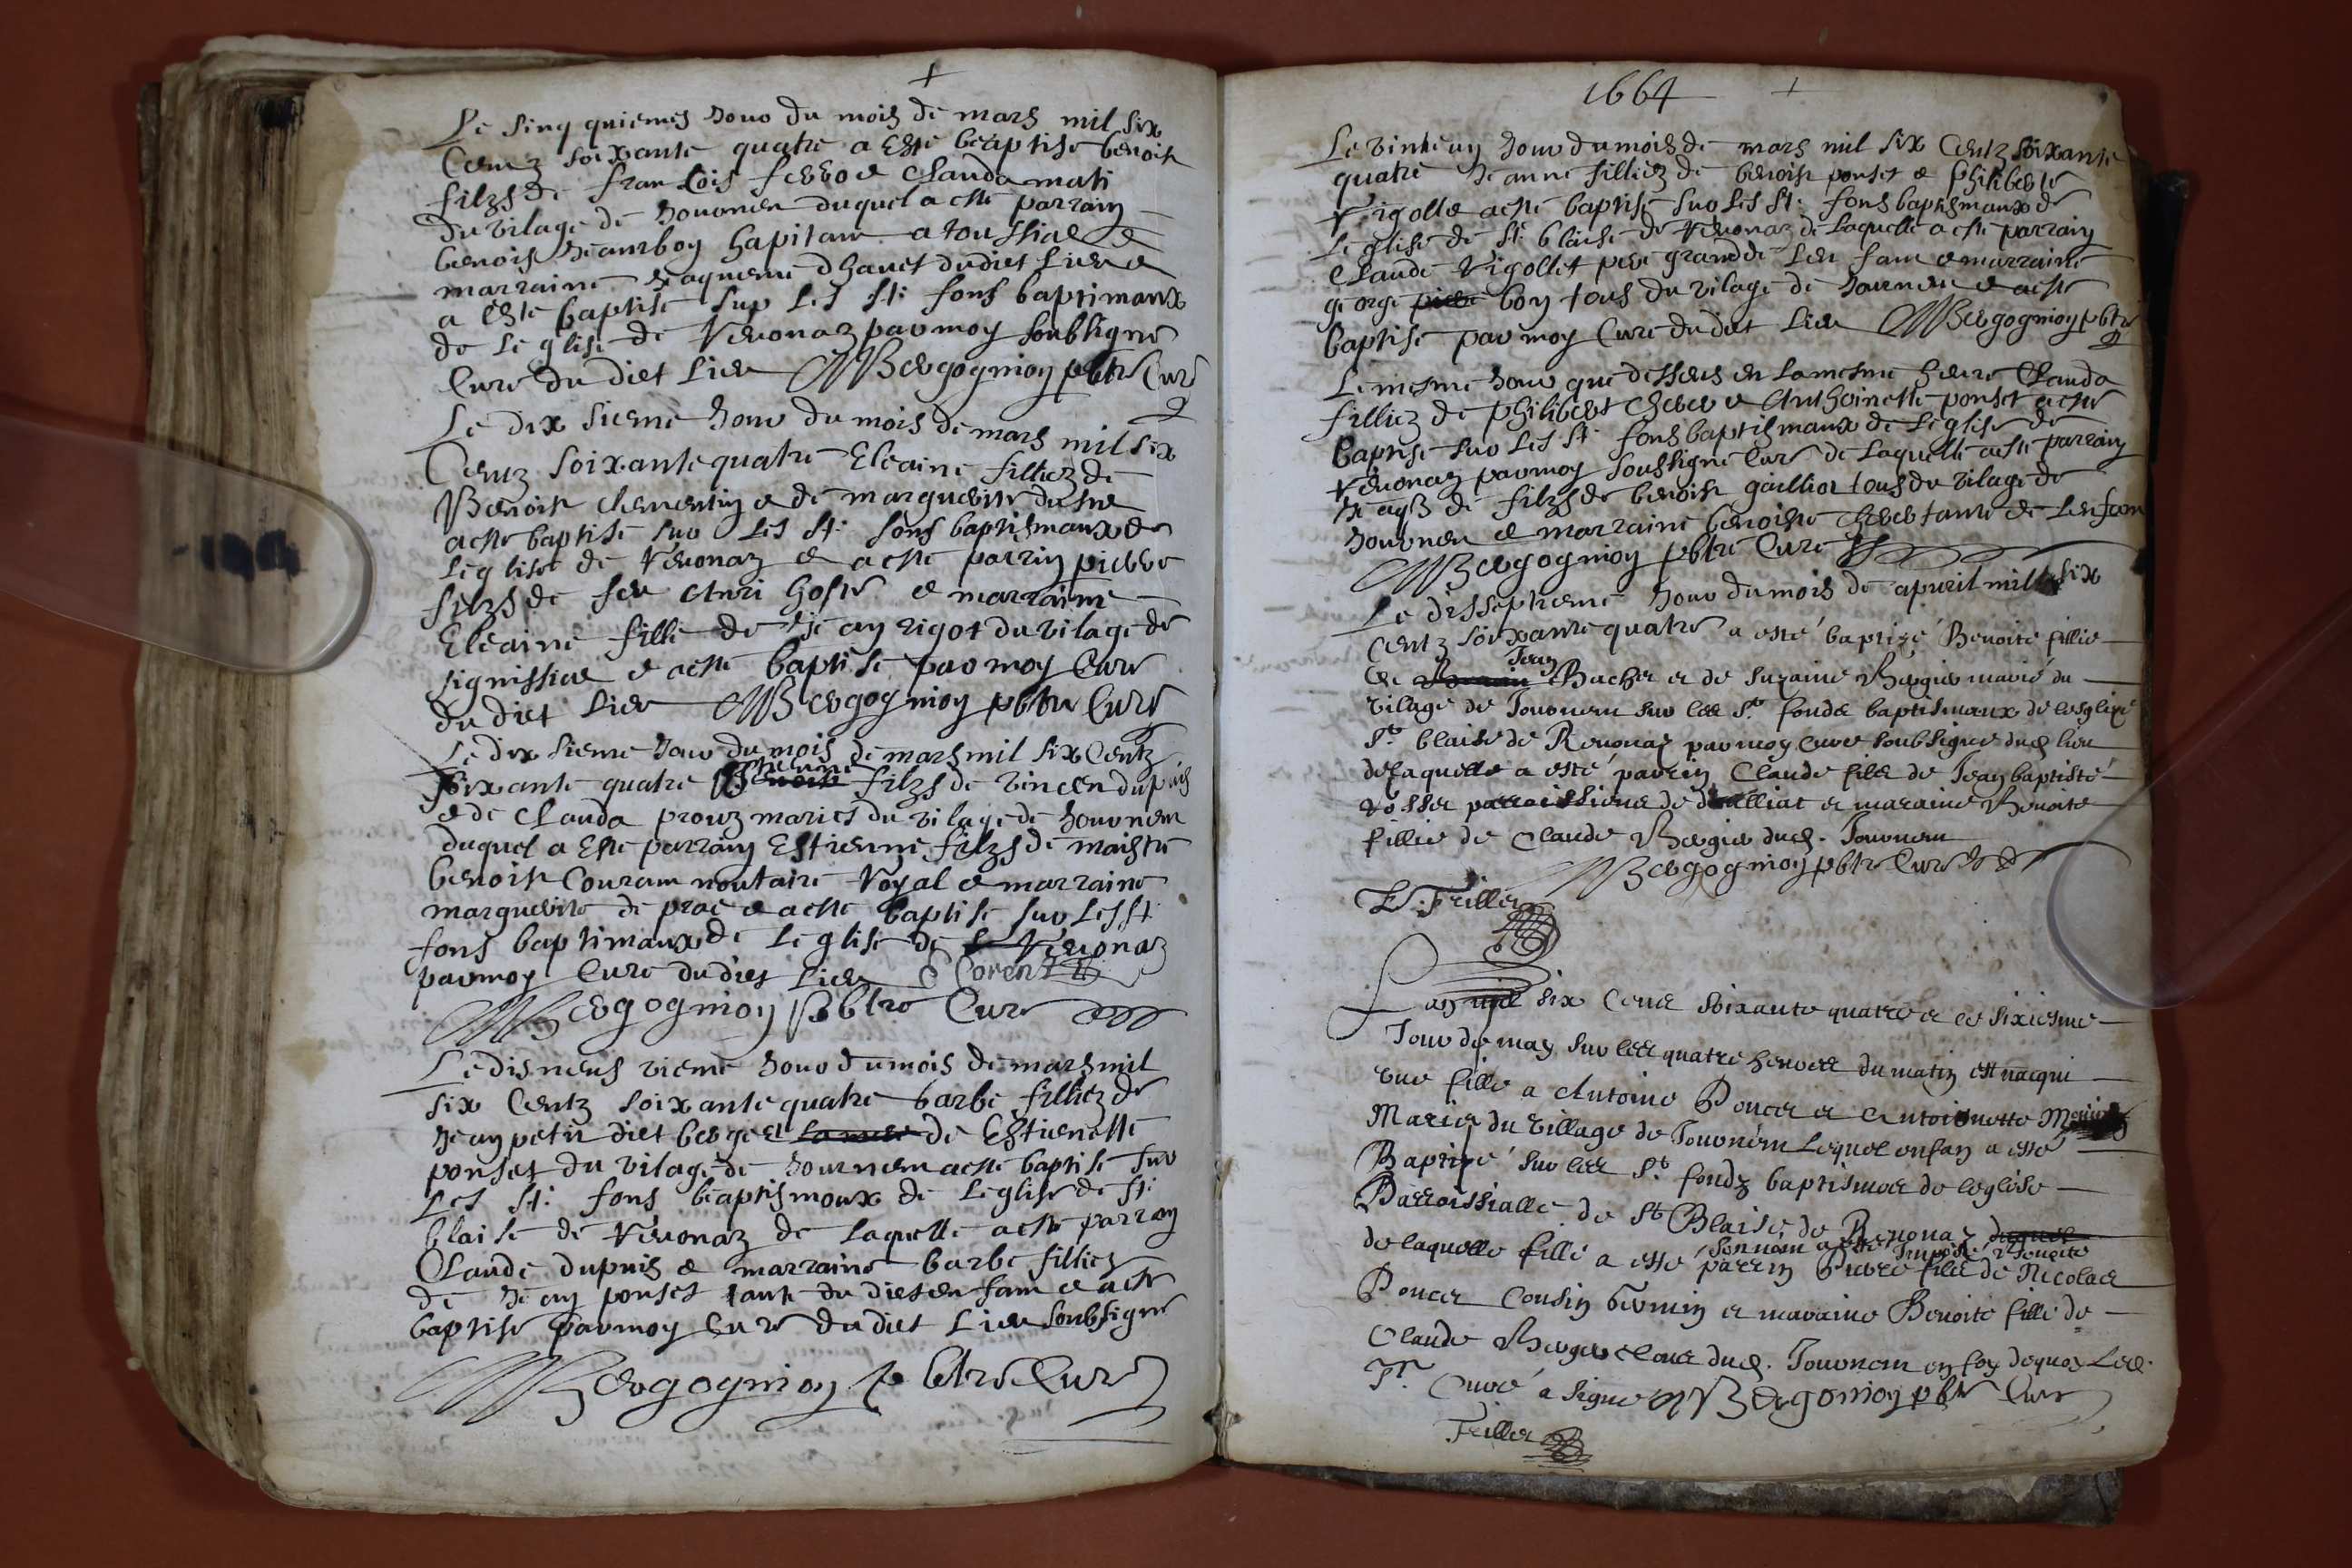 +
Le sinq quiemes Jour du mois de mars mil six
Centz soixante quatre a Este beaptise benoist
filzs de fransois febvoe Clauda mati
du vilage de Jouonen duquel a este parrain
benois Jeamboy hapitant a toussiae
marraine Jaquemé dhauet dudiet Lieu e
a este baptise sur Les St: fons baptimaux
de Leglise de Reuonaz par moy soubsigné
Cure du diet Lieu MBergogniony pbtr Cure
Le dix sieme Jour du mois de mars mil six
Centz soixante quatre Eleaine filliez de
Benoist Clementin e de marguerite
a este baptisé sur Les St: fons baptismaux de
Leglise de Reuonaz e a este parrin pierre
filzs de feu e marraine
Eleaine fille de Jean rigot du vilage de
signissiae e a este baptisé par moy Cure
du diet Lieu MBergogniony pbtr Cure
Le dix sieme Jour du mois de mars mil six Centz
Estienne
soixante quatre Benoist filzs de vincen dupuis
e de Clauda prouz maries du vilage de Jouonem
duquel a Este parrain Estienne filzs de maistre
benoist Couram noutaire Royal e marraine
marguerite de e a este baptisé sur Les St
fons baptimaux de Leglise de Reuonaz
par moy Cure dudiet Lieu Corent
MBergogniony Pbtre Cure
Le disneus vieme Jour du mois de mars mil
six Centz soixante quatre barbe filliez de
Jean petit diet berger La mere de Estienette
ponset du vilage de Journem a este baptisé sur
Les St: fons beaptismoux de Leglise de St:
blaise de Reuonaz de Laquelle a este parrain
Claude dupuis e marraine barbe filliez
de Jean ponset tante du diet en fam e a este
baptisé par moy Cure du diet Lieu soubsigné
MBergogniony pbtre Cure
1664 +
Le vinteun Jour du mois de mars mil six Centz soixante
quatre Jeanne filliez de benoist ponset e philiberte
Rigolle a este baptisé sur Les St: fons baptismaux de
Leglise de St: blaise de Reuonaz de Laquelle a este parrain
Claude Rigollet pere grand de Len fam e marraine
george bon tous du vilage de Journem e a este
baptisé par moy Cure dudiet Lieu MBergogniony pbtr
Le mesme Jour que dessus en La mesme heure Clauda
filliez de philibert e Anthoinette ponset a este
baptise sur Les St: fons baptismaux de Leglise de
Reuonaz par moy soussigné Cure de Laquelle a este parrain
filzs de benoist gaillion tous du vilage de
Jouonem e marraine benoiste tante de Len fam
MBergogniony pbtre Cure
Le disseptieme Jour du mois de apvril mil six
Centz soixante quatre a esté baptizé Benoite fillie
Jean
de Bacher et de Suzaine Bergier marié du
vilage de Jouonem sur les Sts fonds baptismaux de lesglize
St blaise de Reuonaz par moy Cure soubsigne dud lieu
de laquelle a esté parrin Claude filz de Jean baptiste
Rosset parroissiens de dalliat et maraine Benoite
fillie de Claude Bergier dud. Jouonem
MBergogniony pbtr Cure
Fillier
Lan mil six Cens soixante quatre et ce sixiesme
Jour de may sur les quatre heures du matin est nacqui
une fille a Antoine Poncet et Antoinette
Mariez du village de Jouonem Lequel enfan a esté
Baptizé sur les Sts fondz baptismaux de leglise
Parroissialle de St Blaise de Reuonaz duquel
son nom a esté Imposé Benoite
de laquelle fille a esté parrin Pierre filz de Nicolas
Poncet Cousin germin et maraine Benoite fille de
Claude Bergier tous dud. Jouonem en foy dequoy Led.
Sr. Curé a signe MBergogniony pbtr Cure
Fillier